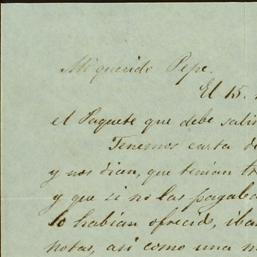 Mi querido Pepe.
El 15.
el Paquete que debe salir
Tenemos carta de
y nos dicen, que tenian
y que si no las pagaba
lo habian ofrecido, iba
notas, asi como una